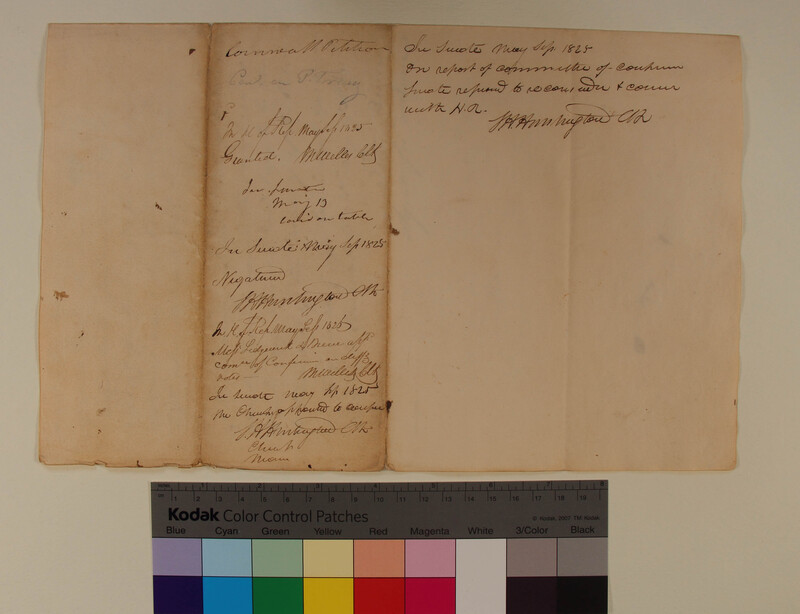 Cornwall Petition
In H of Rep. May Ses 1825
Granted. Clk
In Senate
May 13
on table
In Senate May Ses 1825
Negatived
Huntington Clk
In H of Rep. May Ses 1825
Mess Sedgwick &
Com of Confer on diff
votes Clk
In Senate May Ses 1825
Mr Church appointed to confer
Huntington Clk
Church
In Senate May Ses 1825
On report of committee of
Senate refused to reconsider & concur
with H.R.
Huntington Clk
Kodak Color Control Patches
© Kodak, 2007 TM: Kodak
Blue Cyan Green Yellow Red Magenta White 3/Color Black